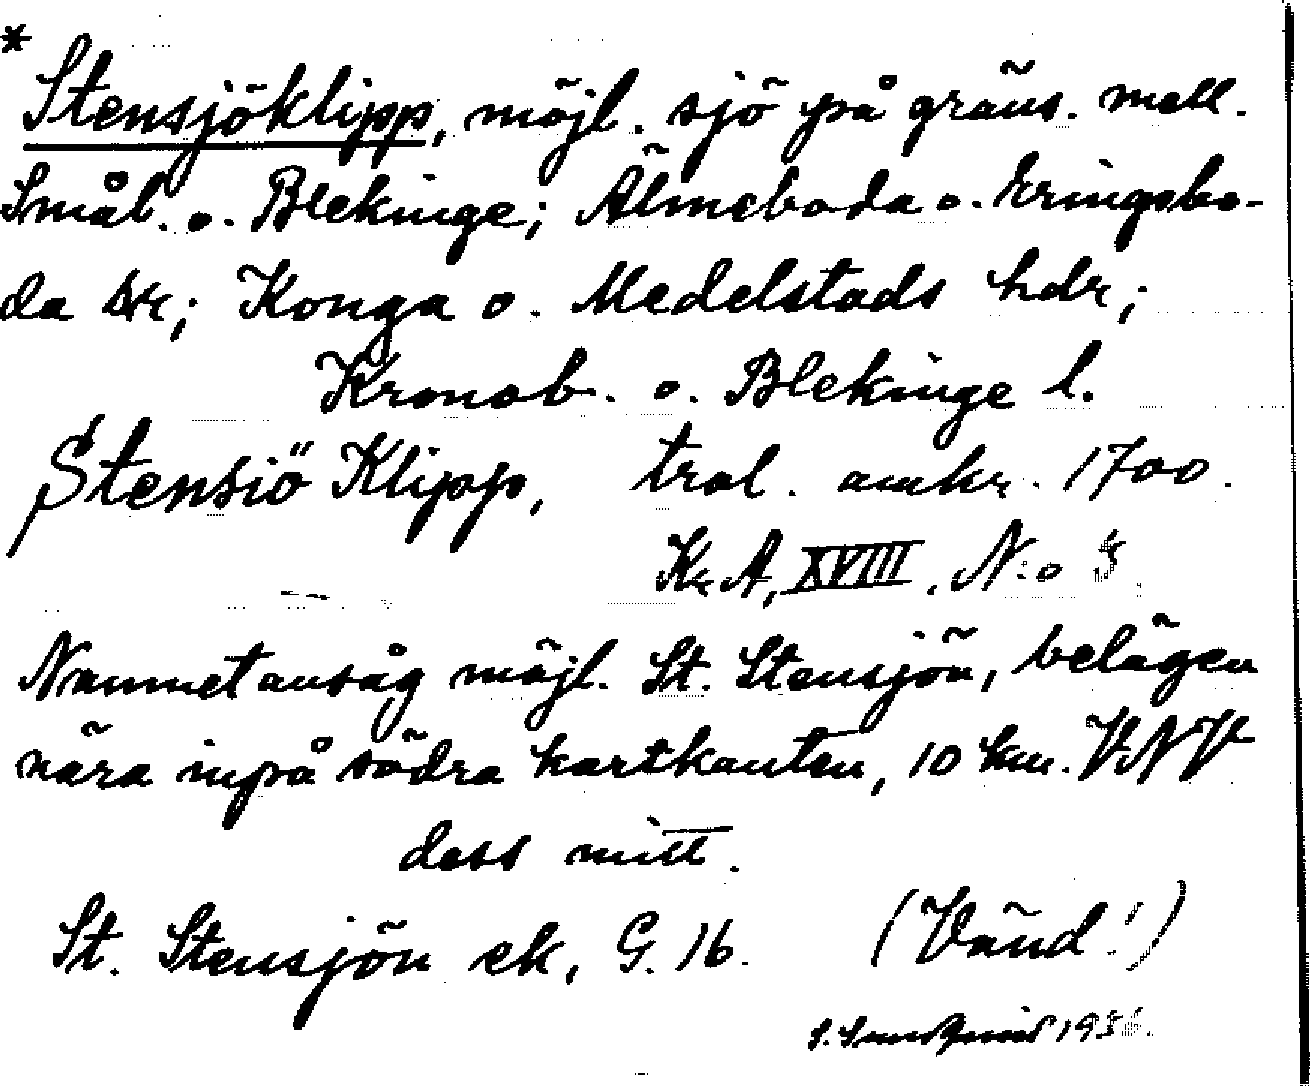 * Stensjöklipp, möjl. sjö på gräns. mell.
Smål. o. Blekinge; Älmeboda o. Eringsbo-
da snr; Konga o. Medelstads hdr;
Kronob. o. Blekinge l.
Stensiö Klipp, trol. omkr. 1700.
Kr.A, XVIII, N:o
Namnet ansåg möjl. St. Stensjön, belägen
nära inpå södra kartkanten, 10 km. VNV
dess mitt.
St. Stensjön ek, G. 16. (Vänd!)